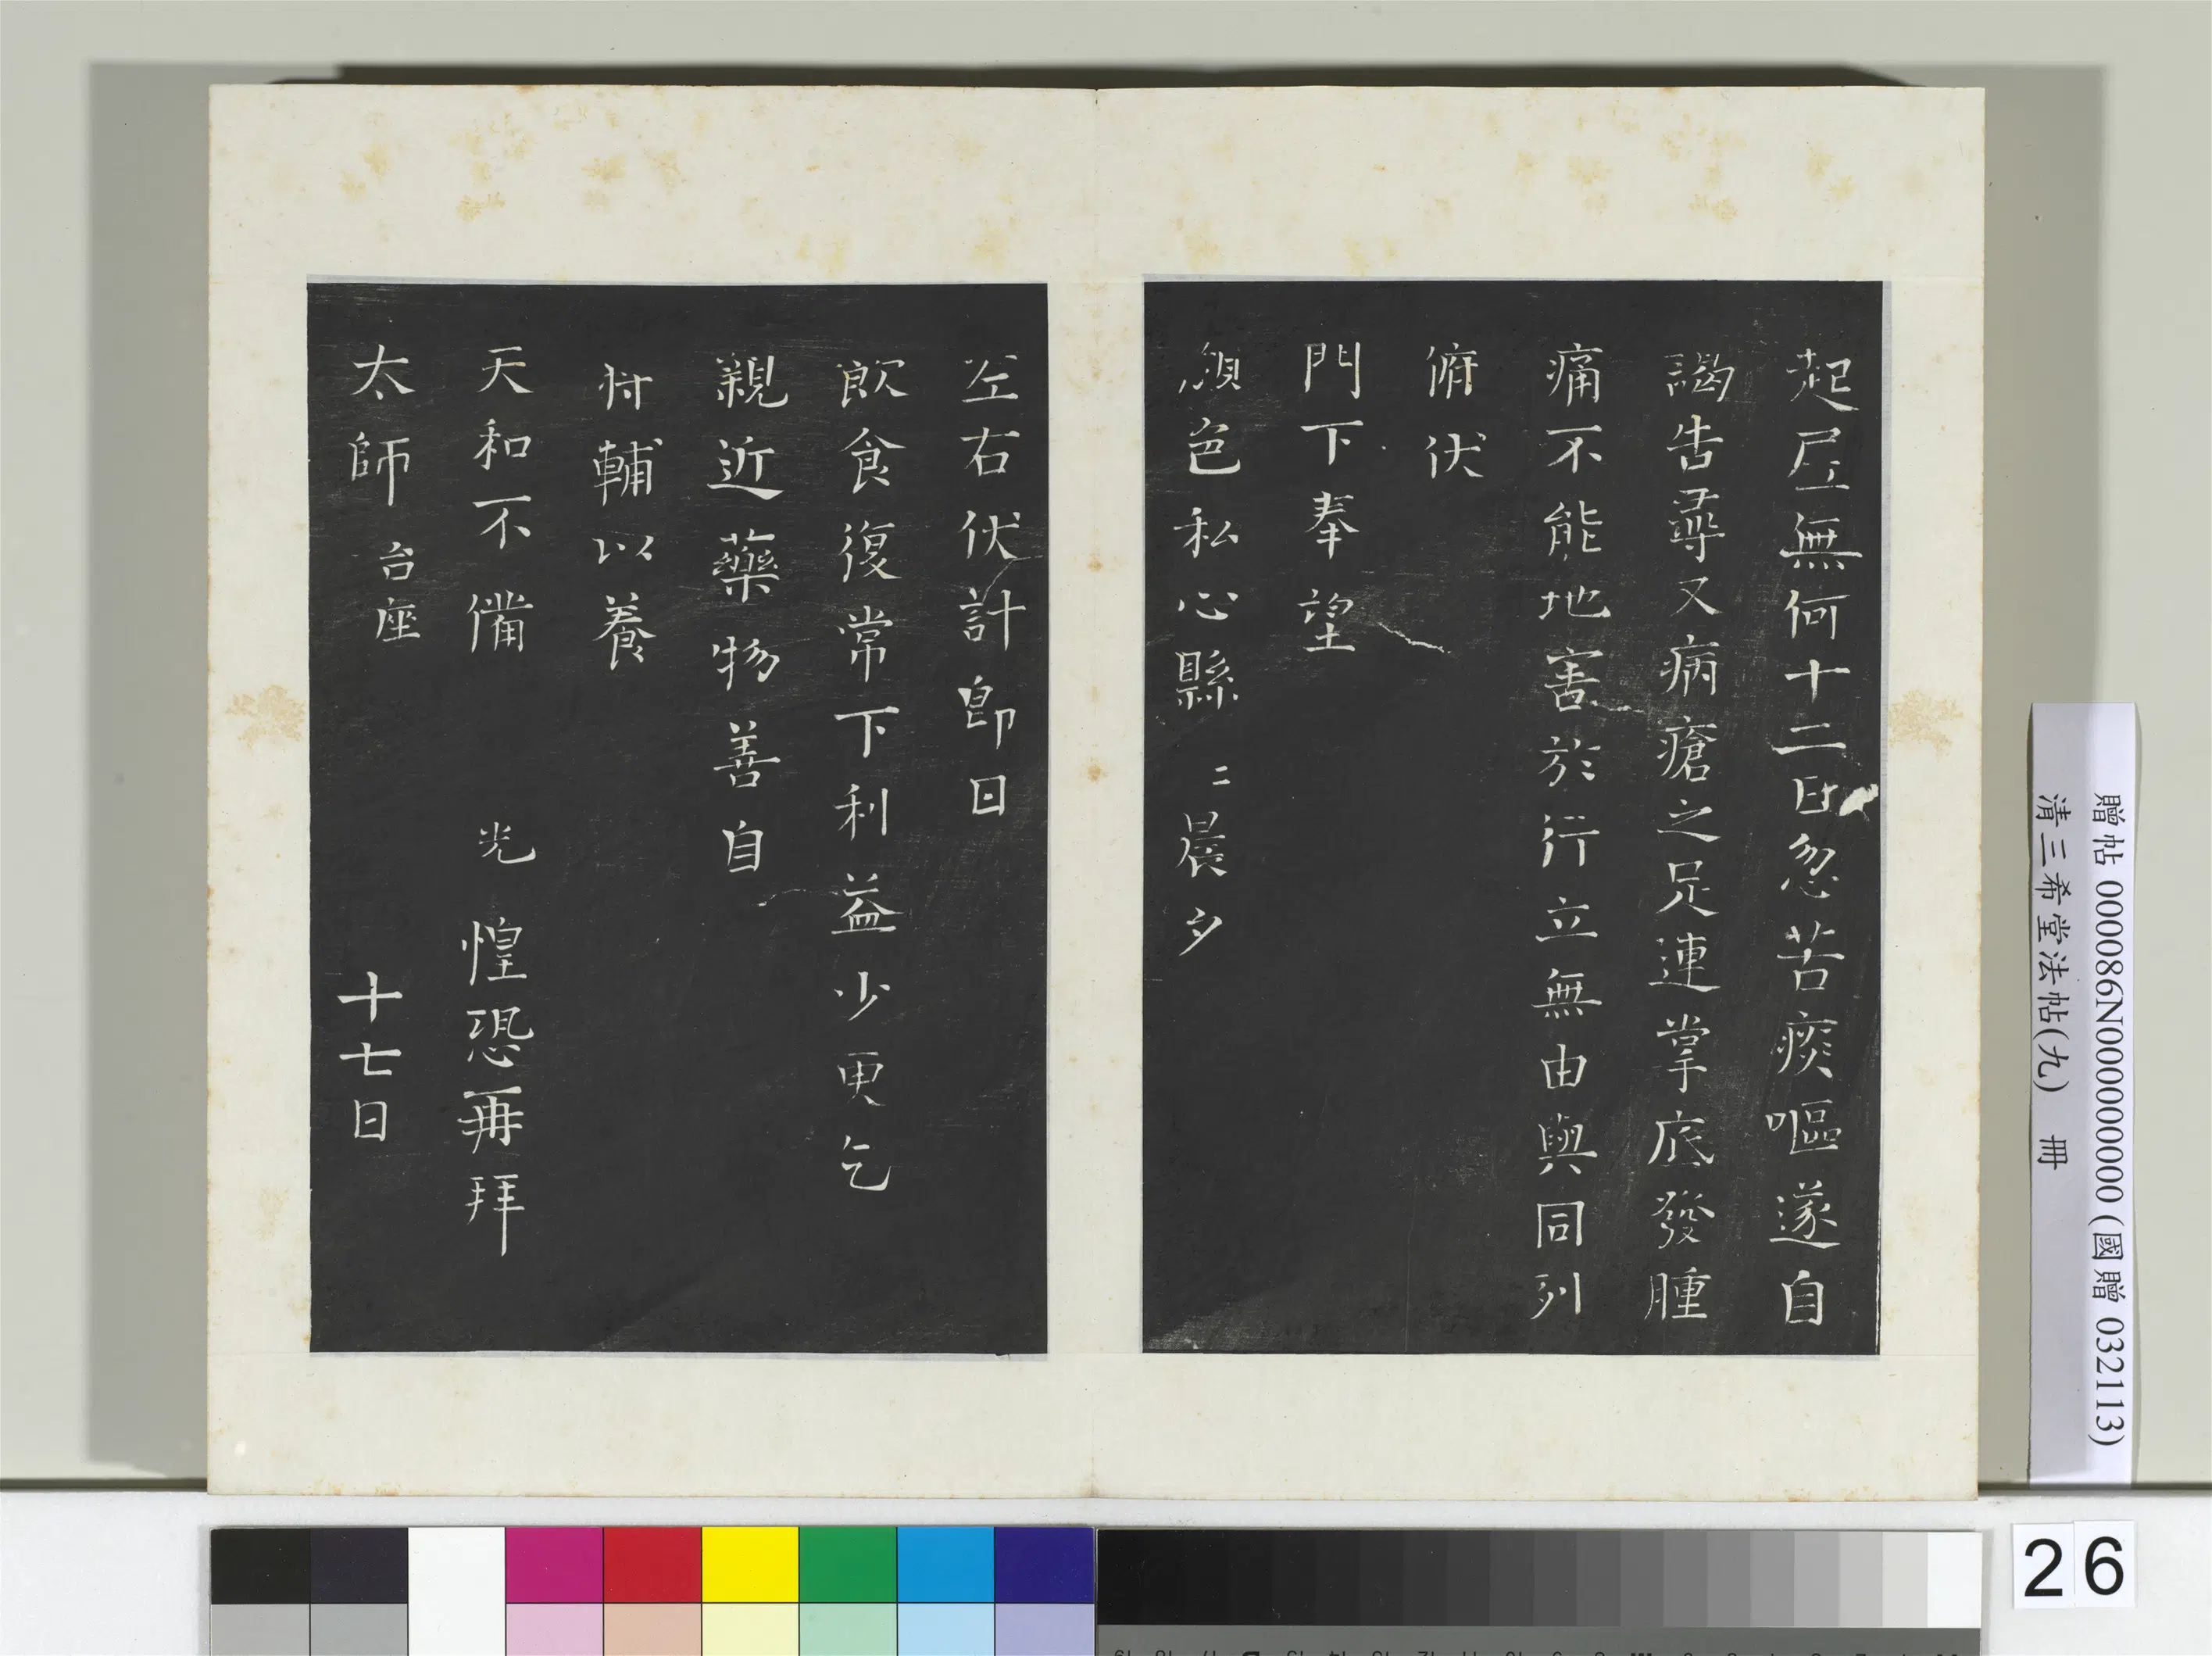 起居無何十二日忽苦痰嘔遂自
謁告尋又病瘡之足連掌底發腫
痛不能地害於行立無由與同列
俯伏
門下奉望
顏色私心縣〻晨夕
左右伏計即日
飲食復常下利益少更乞
親近藥物善自
將輔以養
天和不備 光 惶恐再拜
太師 台座 十七日
贈帖 0000086N000000000 (國贈 032113)
清三希堂法帖(九) 冊
26